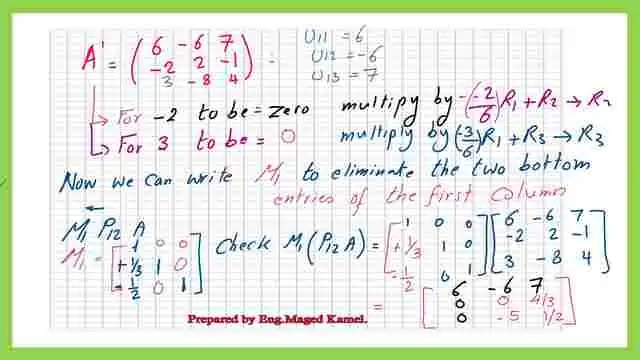 A' = ( 6 -6 7
-2 2 -1
3 -8 4 )
U11 = 6
U12 = -6
U13 = 7
For -2 to be = zero multipy by -(-2/6) R1 + R2 → R2
For 3 to be = 0 multipy by (-3/6) R1 + R3 → R3
Now we can write M1 to eliminate the two bottom
entries of the first Column
M1 P12 A
M1 = [ 1 0 0
+1/3 1 0
-1/2 0 1 ]
Check M1 (P12 A) = [ 1 0 0
+1/3 1 0
-1/2 0 1 ] [ 6 -6 7
-2 2 -1
3 -8 4 ]
= [ 6 -6 7
0 0 4/3
0 -5 1/2 ]
Prepared by Eng.Maged Kamel.